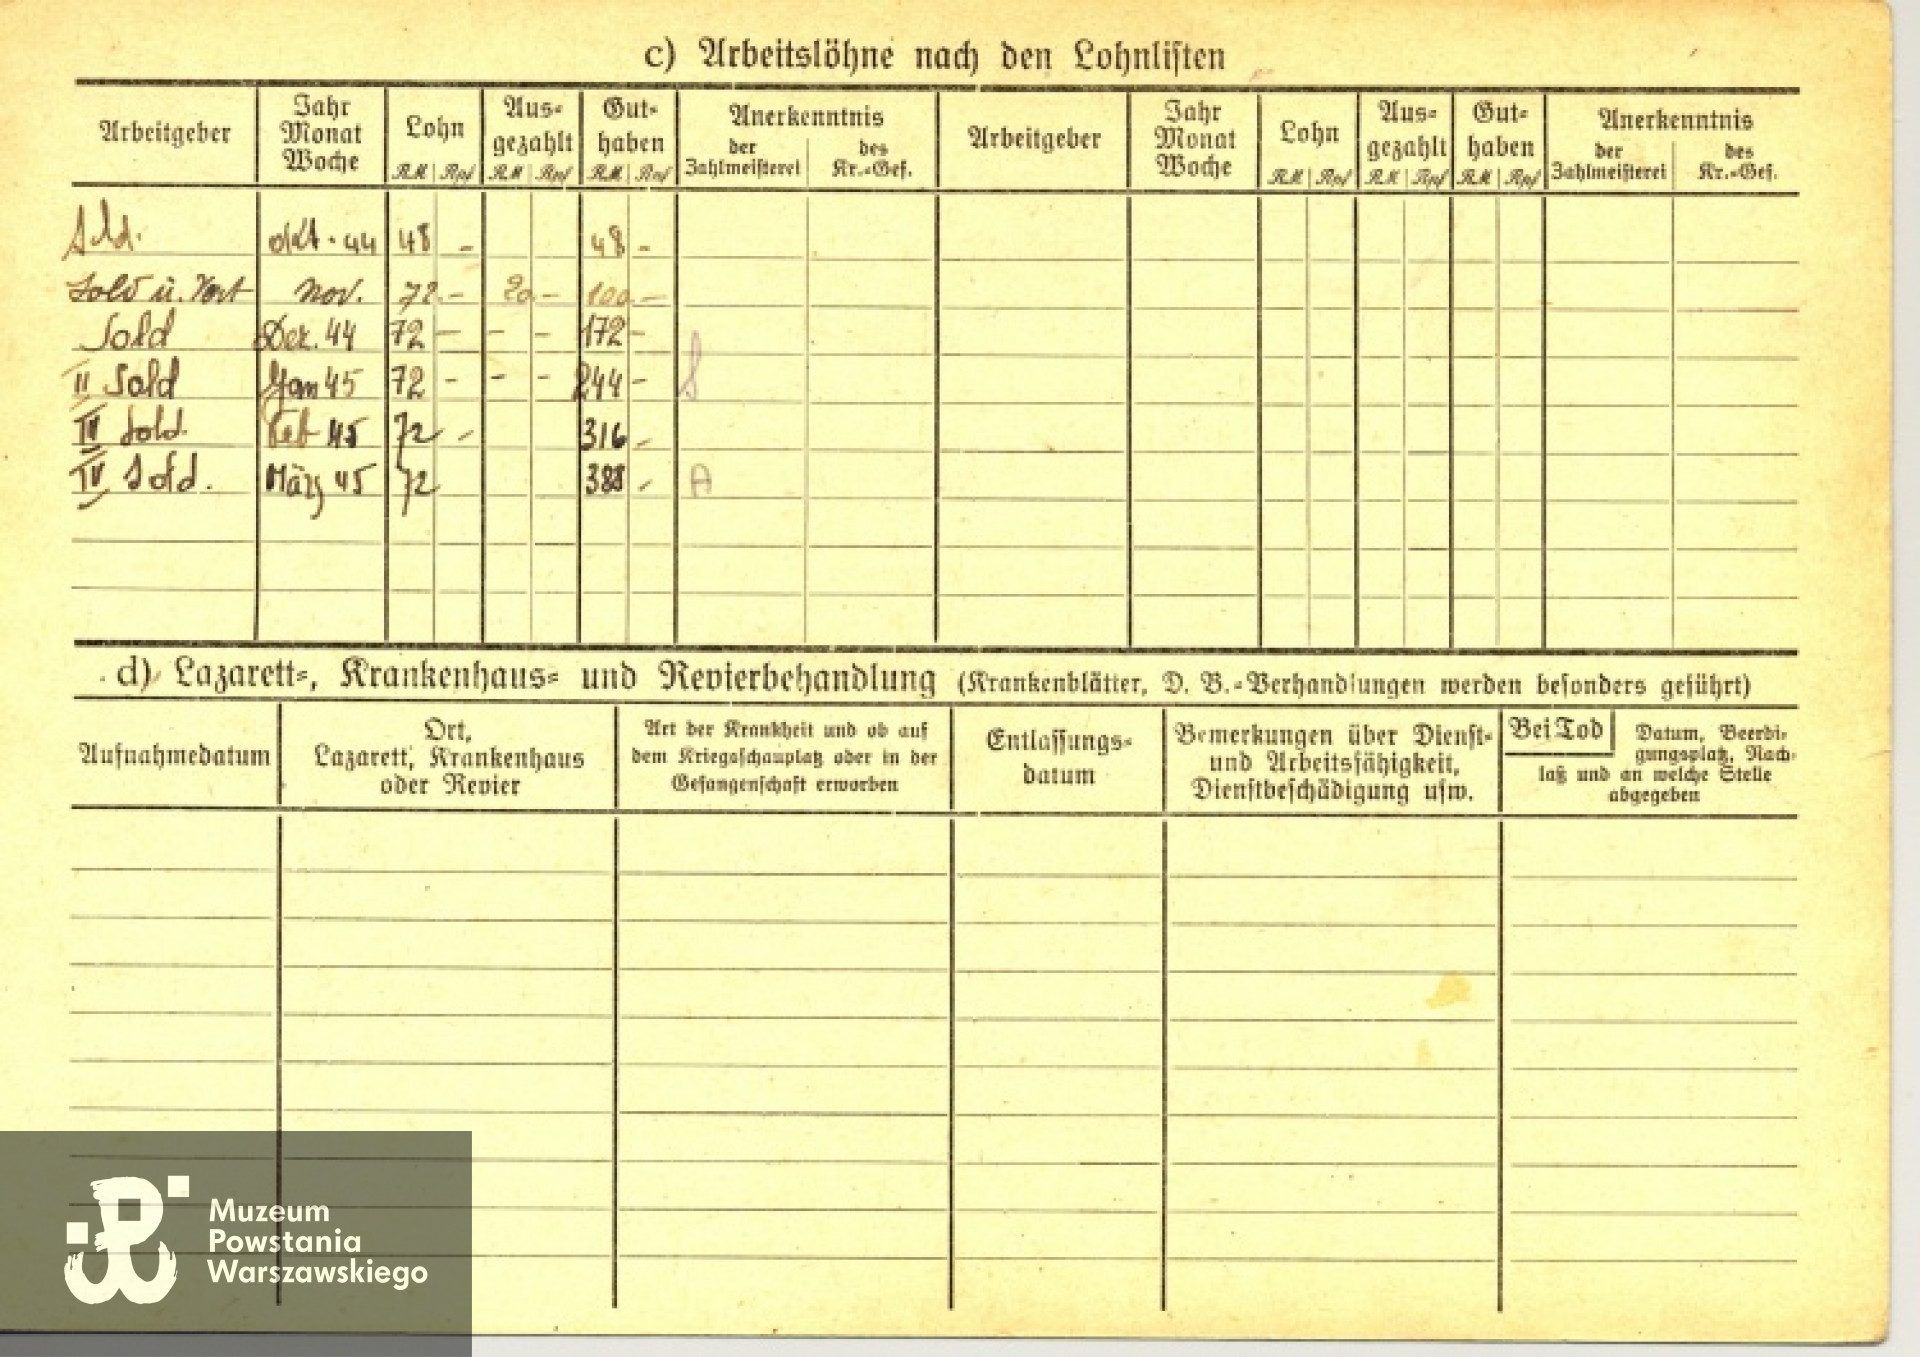 c) Arbeitslöhne nach den Lohnlisten
Arbeitgeber
Jahr
Monat
Woche
Lohn
RM Rpf
Aus-
gezahlt
RM Rpf
Gut-
haben
RM Rpf
Anerkenntnis
der
Zahlmeisterei
des
Kr.-Gef.
Arbeitgeber
Jahr
Monat
Woche
Lohn
RM Rpf
Aus-
gezahlt
RM Rpf
Gut-
haben
RM Rpf
Anerkenntnis
der
Zahlmeisterei
des
Kr.-Gef.
Sold. Okt. 44 48 - 48 -
Sold u. Nov. 72 - 20 - 100 -
Sold Dez. 44 72 - - - 172 -
II Sold Jan 45 72 - - - 244 -
III Sold. Feb 45 72 - 316 -
IV Sold. März 45 72 388 - A
d) Lazarett-, Krankenhaus- und Revierbehandlung (Krankenblätter, D. B.-Verhandlungen werden besonders geführt)
Aufnahmedatum
Ort,
Lazarett, Krankenhaus
oder Revier
Art der Krankheit und ob auf
dem Kriegsschauplatz oder in der
Gefangenschaft erworben
Entlassungs-
datum
Bemerkungen über Dienst-
und Arbeitsfähigkeit,
Dienstbeschädigung usw.
Bei Tod Datum, Beerdi-
gungsplatz, Nach-
laß und an welche Stelle
abgegeben
Muzeum
Powstania
Warszawskiego